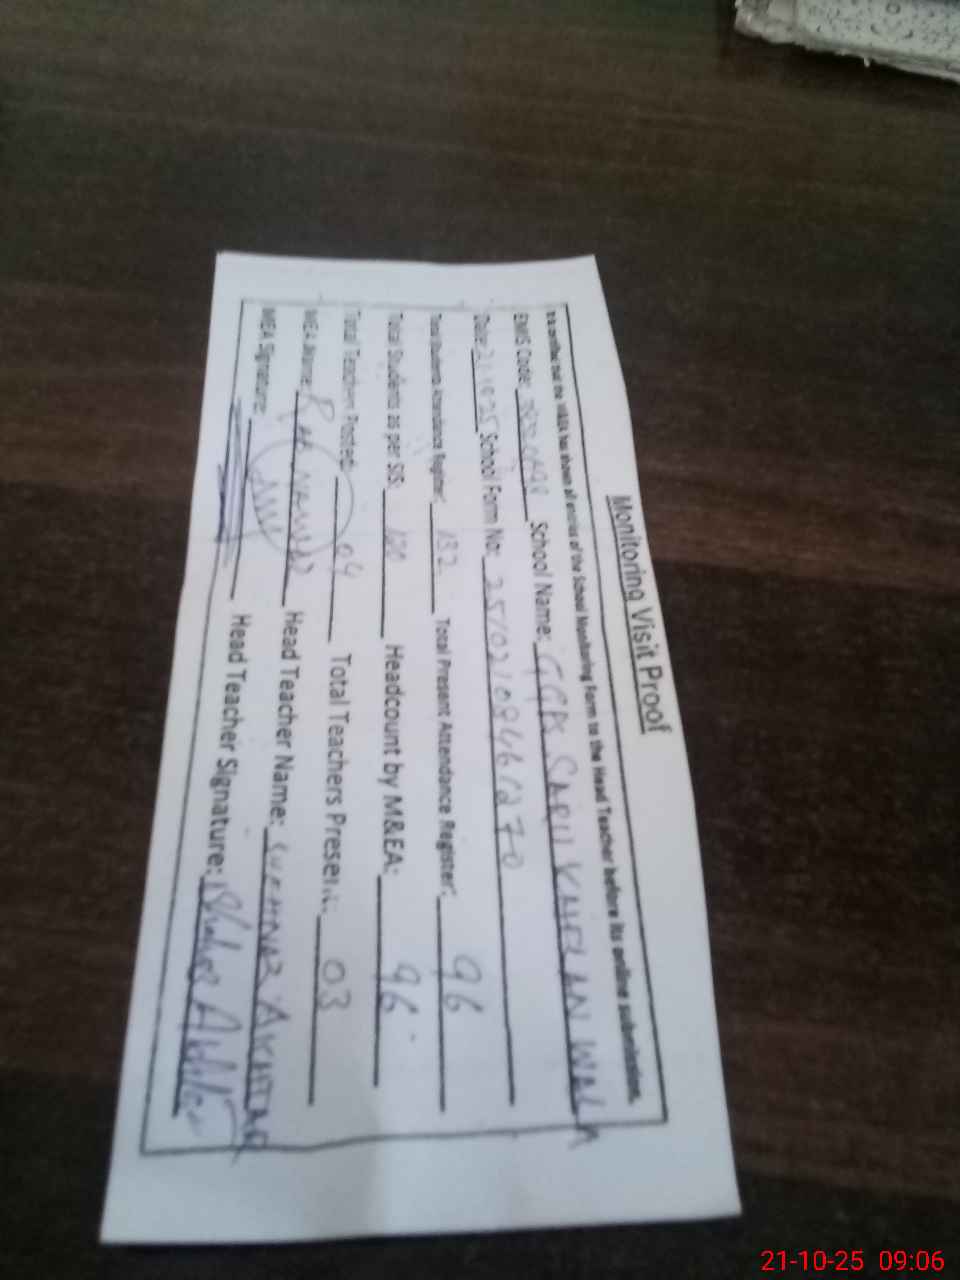 Monitoring Visit Proof
It is certified that the M&EA has shown all entries of the School Monitoring Form to the Head Teacher before its online submission.
EMIS Code: School Name: GGPS WALA
Date: 21.10.25 School Form No: 25102108461270
Total Students Attendance Register: 132 Total Present Attendance Register: 96
Total Students as per SIS: Headcount by M&EA: 96
Total Teachers Posted: 04 Total Teachers Present: 03
MEA Name: Head Teacher Name: AKHTAR
MEA Signature: Head Teacher Signature:
21-10-25 09:06